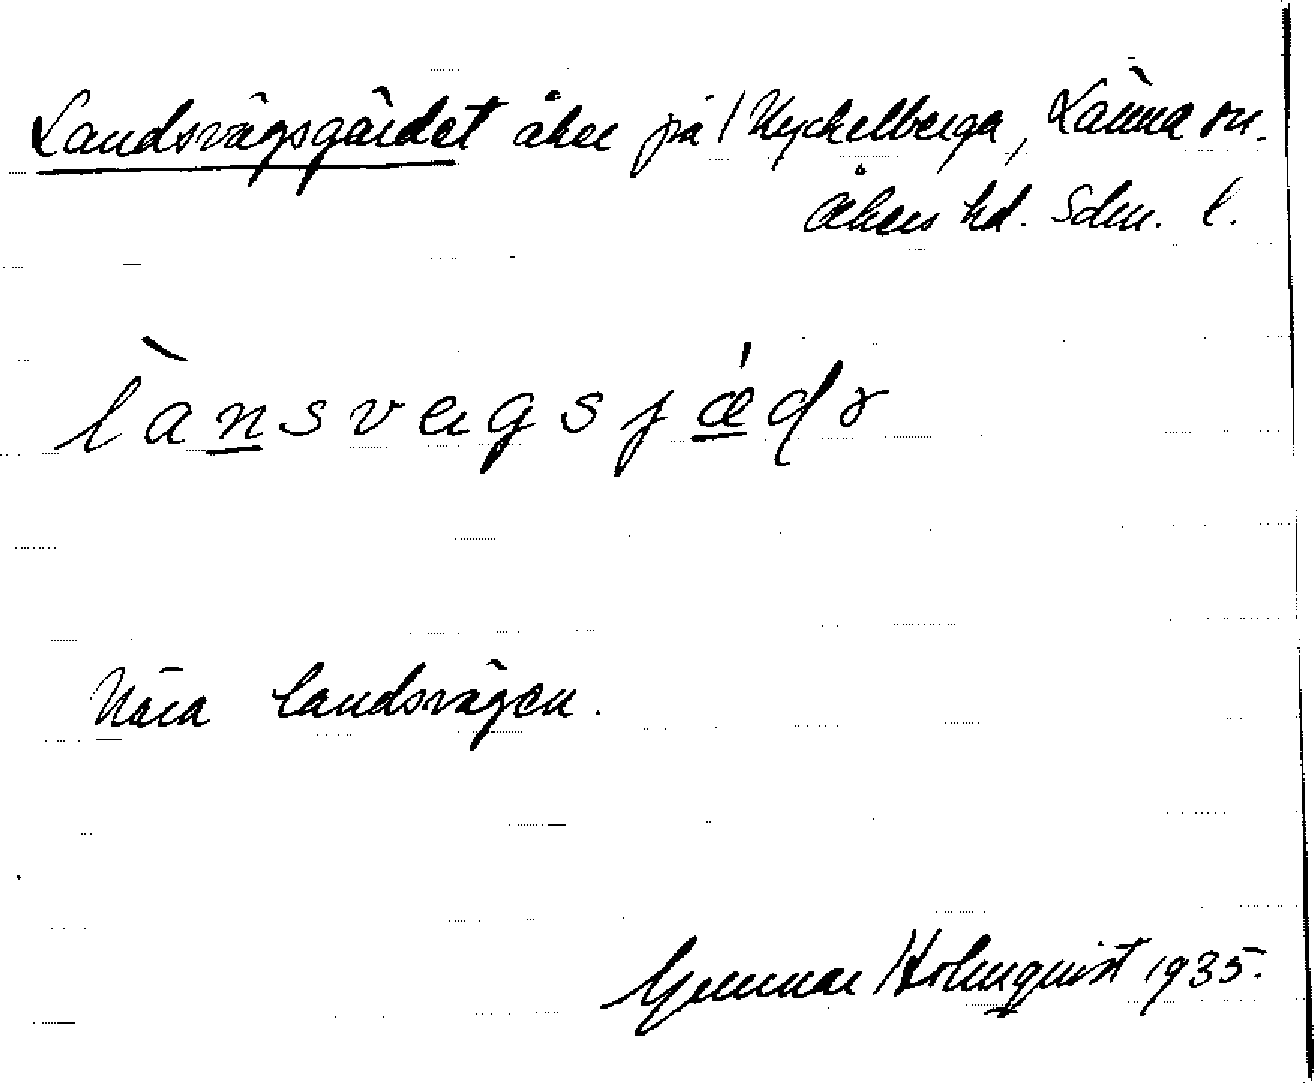 Landsvägsgärdet åker på Nyckelberga, Länna sn.
Åkers hd. Sdm. l.
Nära landsvägen.
Gunnar Holmquist 1935.